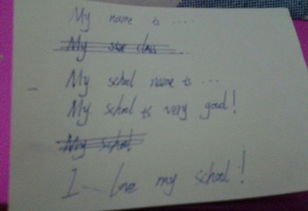 My name is ....
My size class ....
My school name is ...
My school is very good!
My school
I love my school!